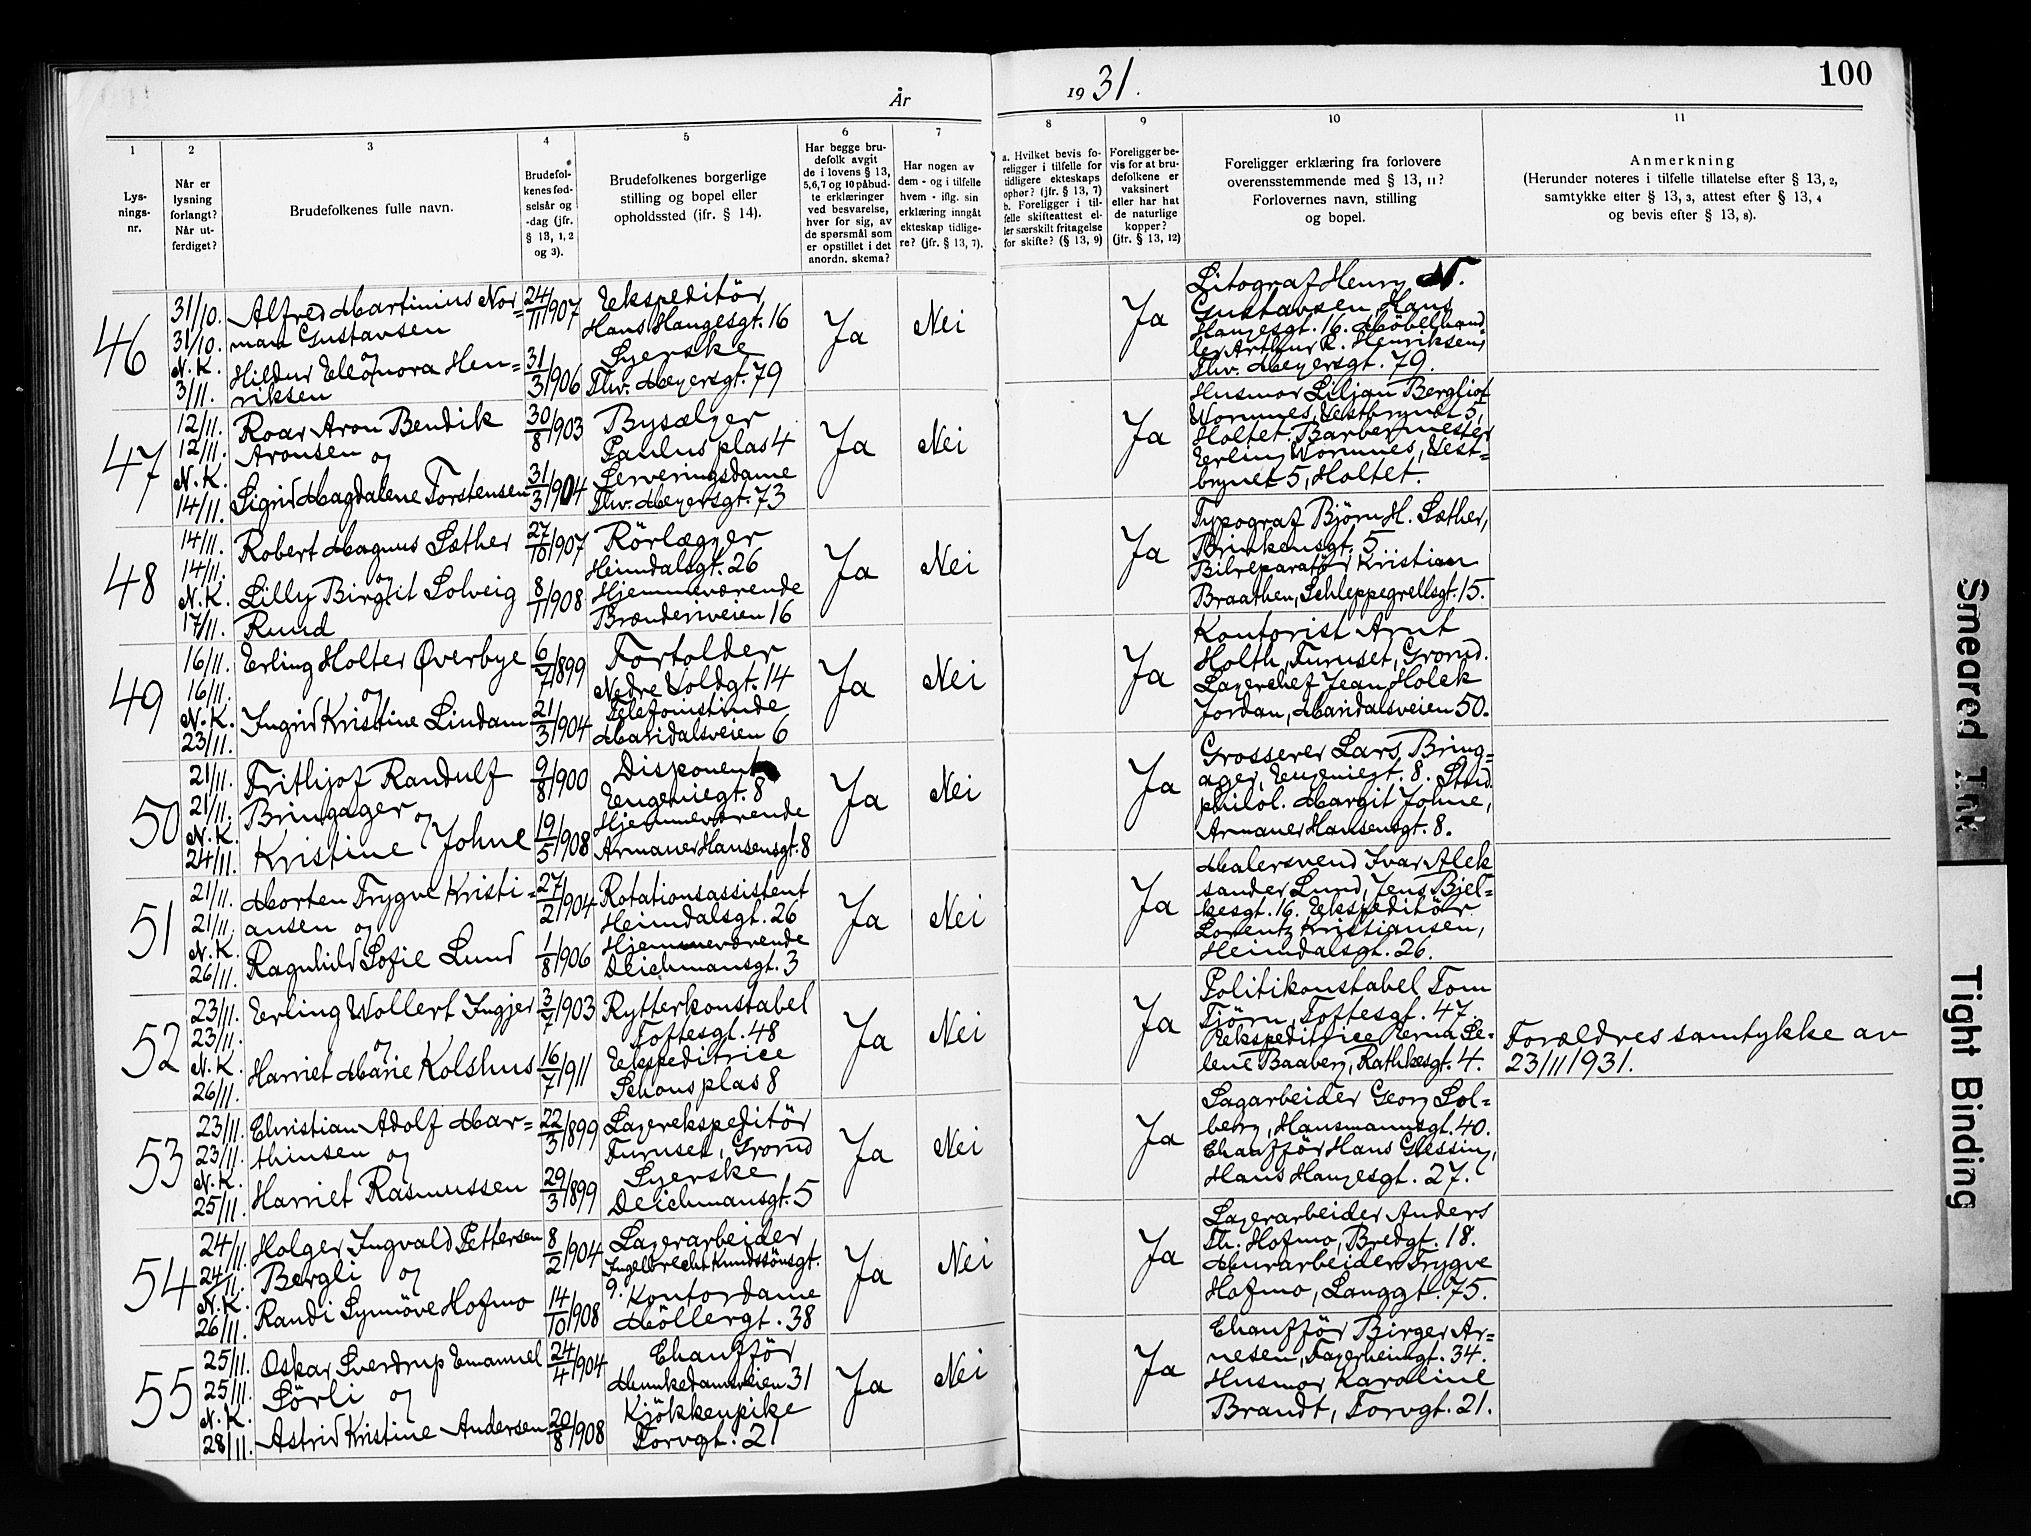 År
1931.
100
1
2
3
4
5
6
7
8
9
10
11
Lys-
nings-
nr.
Når er
lysning
forlangt?
Når ut-
ferdiget?
Brudefolkenes fulle navn.
Brudefol-
kenes fød-
selsår og
-dag (jfr.
§ 13, 1, 2
og 3).
Brudefolkenes borgerlige
stilling og bopel eller
opholdssted (jfr. § 14).
Har begge bru-
defolk avgit
de i lovens § 13,
5,6,7 og 10 påbud-
te erklæringer
ved besvarelse,
hver for sig, av
de spørsmål som
er opstillet i det
anordn. skema?
Har nogen av
dem - og i tilfelle
hvem - iflg. sin
erklæring inngått
ekteskap tidlige-
re? (jfr. § 13, 7).
a. Hvilket bevis fo-
religger i tilfelle for
tidligere ekteskaps
ophør? (jfr. § 13, 7)
b. Foreligger i til-
felle skifteattest el-
ler særskilt fritagelse
for skifte? (§ 13, 9)
Foreligger be-
vis for at bru-
defolkene er
vaksinert
eller har hat
de naturlige
kopper?
(jfr. § 13, 12)
Foreligger erklæring fra forlovere
overensstemmende med § 13, 11?
Forlovernes navn, stilling
og bopel.
Anmerkning
(Herunder noteres i tilfelle tillatelse efter § 13, 2,
samtykke efter § 13, 3, attest efter § 13, 4
og bevis efter § 13, 8).
46
31/10.
31/10.
N.K.
3/11.
Alfred Martinius Nor-
man Gustavsen
og
Hildur Eleonora Hen-
riksen
24/11 1907
31/3 1906
Ekspeditör
Hans Haugesgt. 16
Syerske
Thv. Meyersgt. 79
Ja
Nei
Ja
Litograf Henry N.
Gustavsen, Hans
Haugesgt. 16. Möbelhand-
ler Arthur R. Henriksen,
Thv. Meyersgt. 79.
47
12/11.
12/11.
N.K.
14/11.
Roar Aron Bendik
Aronsen og
Sigrid Magdalene Torstensen
30/8 1903
31/3 1904
Bysælger
Paulus plas 4
Serveringsdame
Thv. Meyersgt. 73
Ja
Nei
Ja
Husmor Liljan Bergliot
Wormnes, Vestbrynet 5,
Holtet. Barbermester
Erling Wormnes, Vest-
brynet 5, Holtet.
48
14/11.
14/11.
N.K.
17/11.
Robert Magnus Sæther
og
Lilly Birgit Solveig
Ruud
27/10 1907
8/11 1908
Rörlægger
Heimdalsgt. 26
Hjemmeværende
Brænderiveien 16
Ja
Nei
Ja
Typograf Björn H. Sæther,
Brinkensgt. 5
Bilreparatör Kristian
Braathen, Schleppegrellsgt. 15.
49
16/11.
16/11.
N.K.
23/11.
Erling Holter Øverbye
og
Ingrid Kristine Lindam
6/7 1899
21/3 1904
Fortolder
Nedre Voldgt. 14
Telefonistinde
Maridalsveien 6
Ja
Nei
Ja
Kontorist Arnt
Holth, Furuset, Grorud.
Lagerchef Jean Holck
Jordan, Maridalsveien 50.
50
21/11.
21/11.
N.K.
24/11.
Frithjof Randulf
Bringager og
Kristine Johne
9/8 1900
19/5 1908
Disponent
Eugeniegt. 8
Hjemmeværende
Armauer Hansensgt. 8
Ja
Nei
Ja
Grosserer Lars Bring-
ager, Eugeniegt. 8. Stud.
philol. Margit Johne,
Armauer Hansensgt. 8.
51
21/11.
21/11.
N.K.
26/11.
Morten Trygve Kristi-
ansen og
Ragnhild Sofie Lund
27/2 1904
1/8 1906
Rotationsassistent
Heimdalsgt. 26
Hjemmeværende
Deichmansgt. 3
Ja
Nei
Ja
Malersvend Ivar Alek-
sander Lund, Jens Bjel-
kesgt. 16. Ekspeditör
Lorentz Kristiansen,
Heimdalsgt. 26.
52
23/11.
23/11.
N.K.
26/11.
Erling Wollert Ingjer
og
Harriet Marie Kolshus
3/7 1903
16/7 1911
Rytterkonstabel
Toftesgt. 48
Ekspeditrice
Schous plas 8
Ja
Nei
Ja
Politikonstabel Tom
Tjörn, Toftesgt. 47.
Ekspeditrice Erna Se-
lene Baaberg, Rathkesgt. 4.
Forældres samtykke av
23/11 1931.
53
23/11.
23/11.
N.K.
25/11.
Christian Adolf Mar-
thinsen og
Harriet Rasmussen
22/3 1899
29/3 1899
Lagerekspeditör
Furuset, Grorud
Syerske
Deichmansgt. 5
Ja
Nei
Ja
Sagarbeider Georg Sol-
berg, Hausmannsgt. 40.
Chafför Hans Glessing,
Hans Haugesgt. 27.
54
24/11.
24/11.
N.K.
26/11.
Holger Ingvald Pettersen
Bergli og
Randi Synnöve Hofmo
8/2 1904
14/10 1908
Lagerarbeider
Ingelbrecht Knudssönsgt.
9. Kontordame
Möllergt. 38
Ja
Nei
Ja
Lagerarbeider Anders
Th. Hofmo, Bredgt. 18.
Murarbeider Trygve
Hofmo, Langgt. 75.
55
25/11.
25/11.
N.K.
28/11.
Oskar Sverdrup Emanuel
Sörli og
Astrid Kristine Andersen
24/4 1904
20/8 1908
Chaufför
Munkedamsveien 31
Kjökkenpike
Torvgt. 21
Ja
Nei
Ja
Chaufför Birger Ar-
nesen, Fagerheimgt. 34.
Husmor Karoline
Brandt, Torvgt. 21.
Smeared Ink
Tight Binding